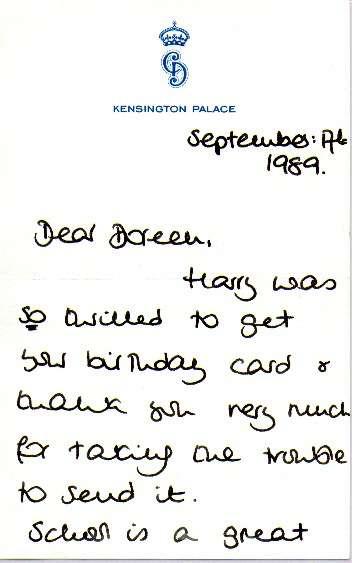 KENSINGTON PALACE
September: 17th
1989.
Dear Doreen,
Harry was
so thrilled to get
your birthday card &
thank you very much
for taking the trouble
to send it.
School is a great